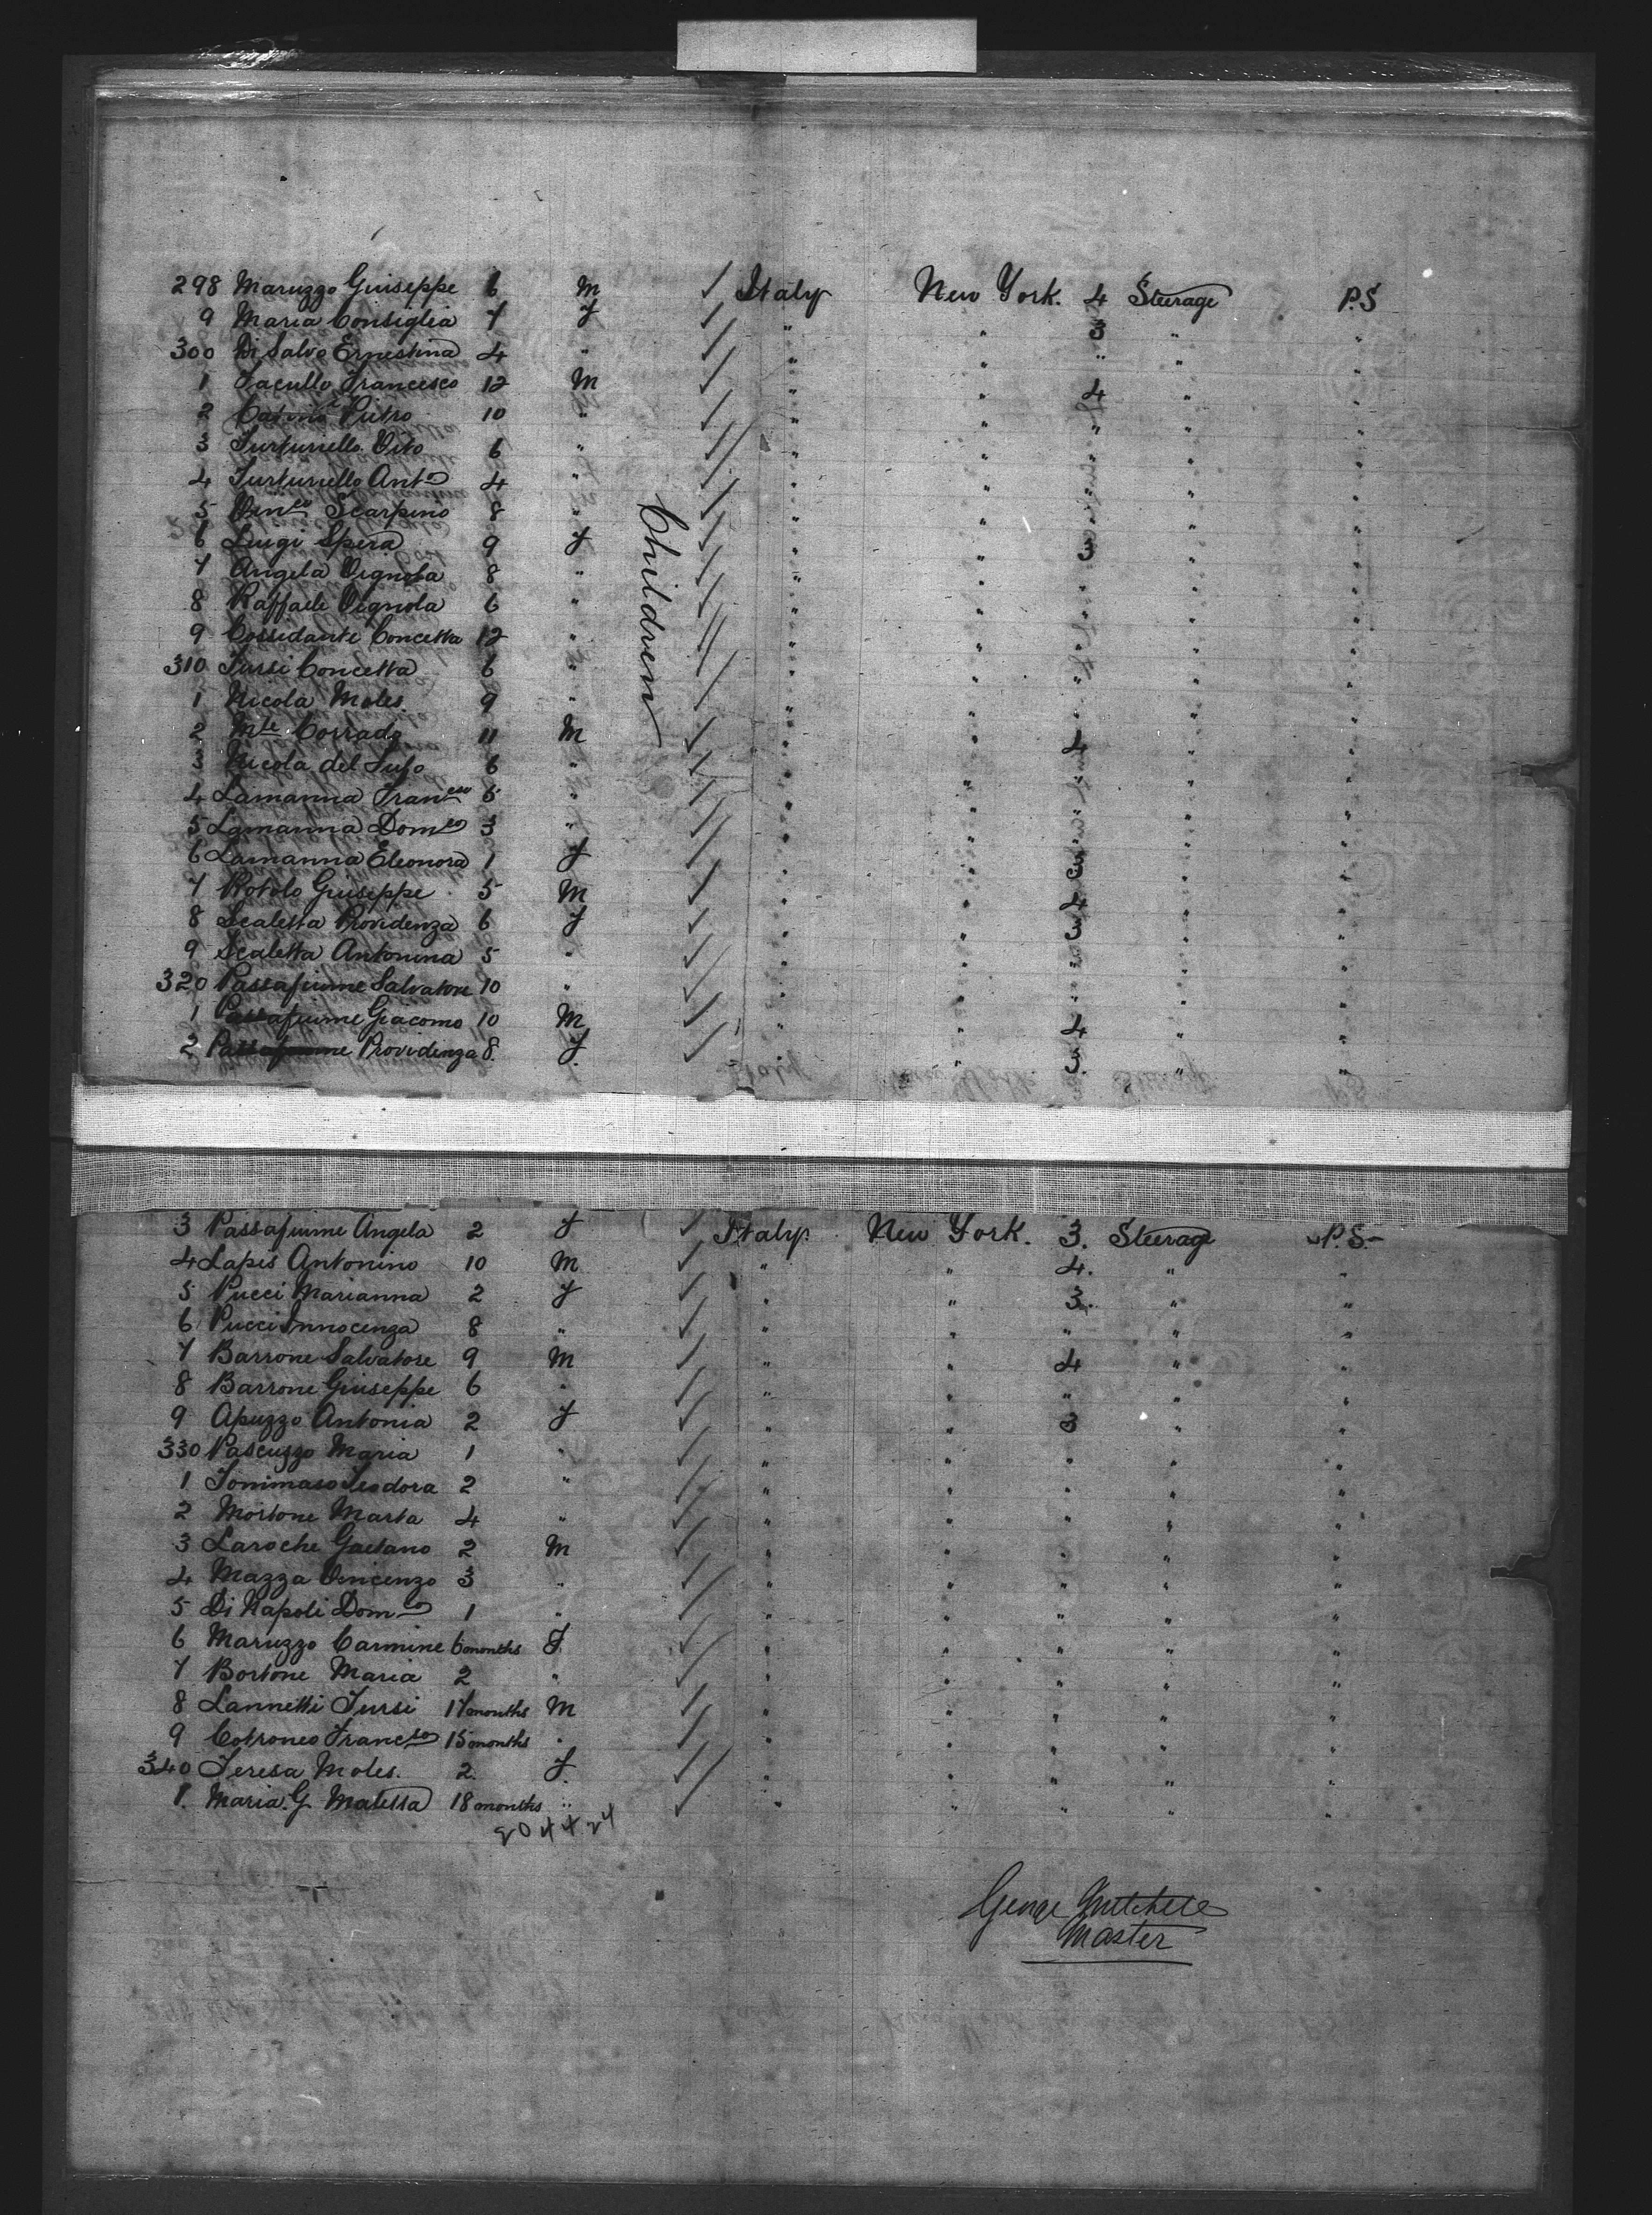 298 Maruzzo Giuseppe 6 M ✓ Italy New York. 4 Steerage P.S
9 Maria Consiglia 7 F ✓ " " 3 " "
300 Di Salvo Ernestina 4 " ✓ " " " " "
1 Iacullo Francesco 12 M ✓ " " 4 " "
2 Pietro 10 " ✓ " " " " "
3 Turturiello Vito 6 " ✓ " " " " "
4 Turturiello Ant° 4 " ✓ " " " " "
5 Vinco Scarpino 8 " ✓ " " " " "
6 Luigi Spera 9 F ✓ " " 3 " "
7 Angela Vignola 8 " ✓ " " " " "
8 Raffaele Vignola 6 " ✓ " " " " "
9 Cossidante Concetta 12 " ✓ " " " " "
310 Tursi Concetta 6 " ✓ " " " " "
1 Nicola Moles. 9 " ✓ " " " " "
2 Mte Corrado 11 M ✓ " " 4 " "
3 Nicola del Tufo 6 " ✓ " " " " "
4 Lamanna Francesco 5 " ✓ " " " " "
5 Lamanna Domco 3 " ✓ " " " " "
6 Lamanna Eleonora 1 F ✓ " " 3 " "
7 Rotolo Giuseppe 5 M ✓ " " 4 " "
8 Scaletta Providenza 6 F ✓ " " 3 " "
9 Scaletta Antonina 5 " ✓ " " " " "
320 Passafiume Salvatore 10 " ✓ " " " " "
1 Passafiume Giacomo 10 M ✓ " " 4 " "
2 Passafiume Providenza 8. F. ✓ " " 3. " "
Children
3 Passafiume Angela 2 F ✓ Italy. New York. 3. Steerage P.S.
4 Lapis Antonino 10 M ✓ " " 4. " "
5 Pucci Marianna 2 F ✓ " " 3. " "
6 Pucci Innocenza 8 " ✓ " " " " "
7 Barrone Salvatore 9 M ✓ " " 4 " "
8 Barrone Giuseppe 6 " ✓ " " " " "
9 Apuzzo Antonia 2 F ✓ " " 3 " "
330 Pascuzzo Maria 1 " ✓ " " " " "
1 Tommaso Teodora 2 " ✓ " " " " "
2 Mortone Marta 4 " ✓ " " " " "
3 Laroche Gaetano 2 M ✓ " " " " "
4 Mazza Vincenzo 3 " ✓ " " " " "
5 Di Napoli Domco 1 " ✓ " " " " "
6 Maruzzo Carmine 6 months F. ✓ " " " " "
7 Bortone Maria 2 " ✓ " " " " "
8 Lannetti Tursi 17 months M ✓ " " " " "
9 Cotroneo Francsco 15 months " ✓ " " " " "
340 Teresa Moles. 2. F. ✓ " " " " "
1. Maria. G. Matessa 18 months " ✓ " " " " "
George Mitchell
Master